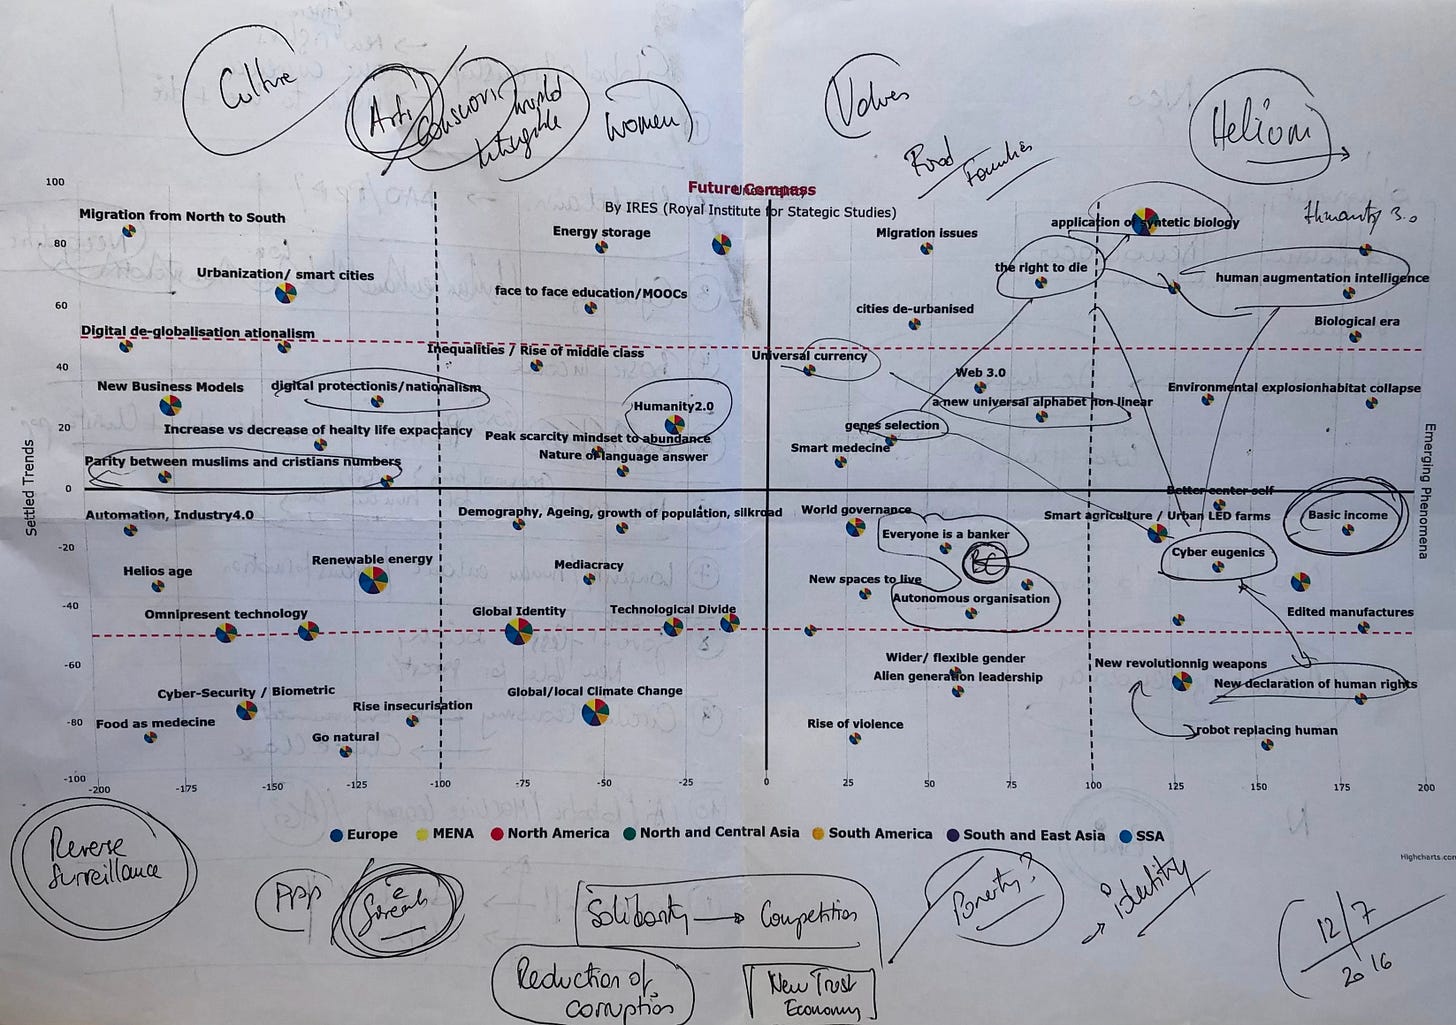 Culture
Arts
world
Intangible
Women
Values
Food
Families
Helium
Humanity 3.0
Future Compass
By IRES (Royal Institute for Stategic Studies)
100
Migration from North to South
Energy storage
Migration issues
application of syntetic biology
80
Urbanization/ smart cities
face to face education/MOOCs
the right to die
human augmentation intelligence
60
cities de-urbanised
Biological era
Digital de-globalisation ationalism
Inequalities / Rise of middle class
Universal currency
40
New Business Models
digital protectionis/nationalism
Humanity2.0
Web 3.0
a new universal alphabet non linear
Environmental explosionhabitat collapse
20
Increase vs decrease of healty life expactancy
Peak scarcity mindset to abundance
Nature of language answer
genes selection
Smart medecine
Parity between muslims and cristians numbers
Settled Trends
Emerging Phenomena
0
Better center self
Automation, Industry4.0
Demography, Ageing, growth of population, silkroad
World governance
Smart agriculture / Urban LED farms
Basic income
-20
Everyone is a banker
BC
Cyber eugenics
Helios age
Renewable energy
Mediacracy
New spaces to live
-40
Autonomous organisation
Omnipresent technology
Global Identity
Technological Divide
Edited manufactures
-60
Wider/ flexible gender
Alien generation leadership
New revolutionnig weapons
New declaration of human rights
Cyber-Security / Biometric
Rise insecurisation
Global/local Climate Change
-80
Food as medecine
Go natural
Rise of violence
robot replacing human
-100
-200 -175 -150 -125 -100 -75 -50 -25 0 25 50 75 100 125 150 175 200
Europe MENA North America North and Central Asia South America South and East Asia SSA
Highcharts.com
Reverse
Surveillance
PPP
Solidarity → Competition
Poverty?
→ identity
12/7
2016
Reduction of
corruption
New Trust
Economy